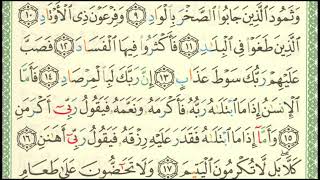 وَثَمُودَ ٱلَّذِينَ جَابُوا۟ ٱلصَّخْرَ بِٱلْوَادِ ٩ وَفِرْعَوْنَ ذِى ٱلْأَوْتَادِ ١٠
ٱلَّذِينَ طَغَوْا۟ فِى ٱلْبِلَـٰدِ ١١ فَأَكْثَرُوا۟ فِيهَا ٱلْفَسَادَ ١٢ فَصَبَّ
عَلَيْهِمْ رَبُّكَ سَوْطَ عَذَابٍ ١٣ إِنَّ رَبَّكَ لَبِٱلْمِرْصَادِ ١٤ فَأَمَّا
ٱلْإِنسَـٰنُ إِذَا مَا ٱبْتَلَىٰهُ رَبُّهُۥ فَأَكْرَمَهُۥ وَنَعَّمَهُۥ فَيَقُولُ رَبِّىٓ أَكْرَمَنِ
١٥ وَأَمَّآ إِذَا مَا ٱبْتَلَىٰهُ فَقَدَرَ عَلَيْهِ رِزْقَهُۥ فَيَقُولُ رَبِّىٓ أَهَـٰنَنِ ١٦
كَلَّا ۖ بَل لَّا تُكْرِمُونَ ٱلْيَتِيمَ ١٧ وَلَا تَحَـٰٓضُّونَ عَلَىٰ طَعَامِ